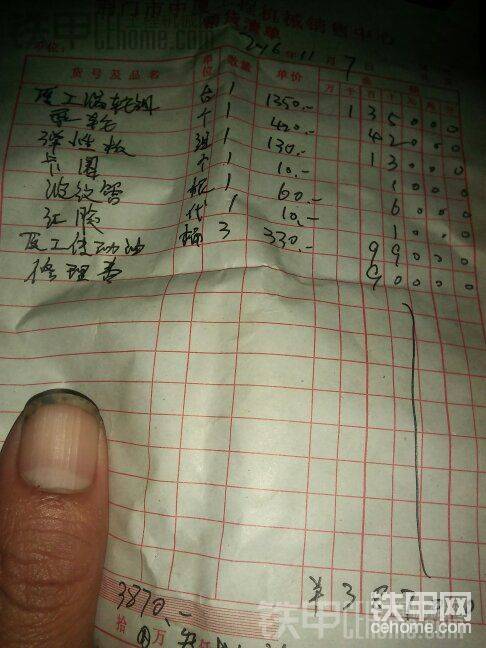 门市中 工程机械销售中心
销货清单
2016年11月7日
货号及品名 单位 数量 单价 金额
厦工涡轮组 台 1 1350.- 135000
泵轮 个 1 420.- 42000
弹性板 组 1 130.- 13000
卡圈 个 1 10.- 1000
波纹管 1 60.- 6000
红胶 1 10.- 1000
厦工传动油 桶 3 330.- 99000
修理费 90000
3870.-
¥3870
拾 万
铁甲
CEhome.com
铁甲网
www.cehome.com